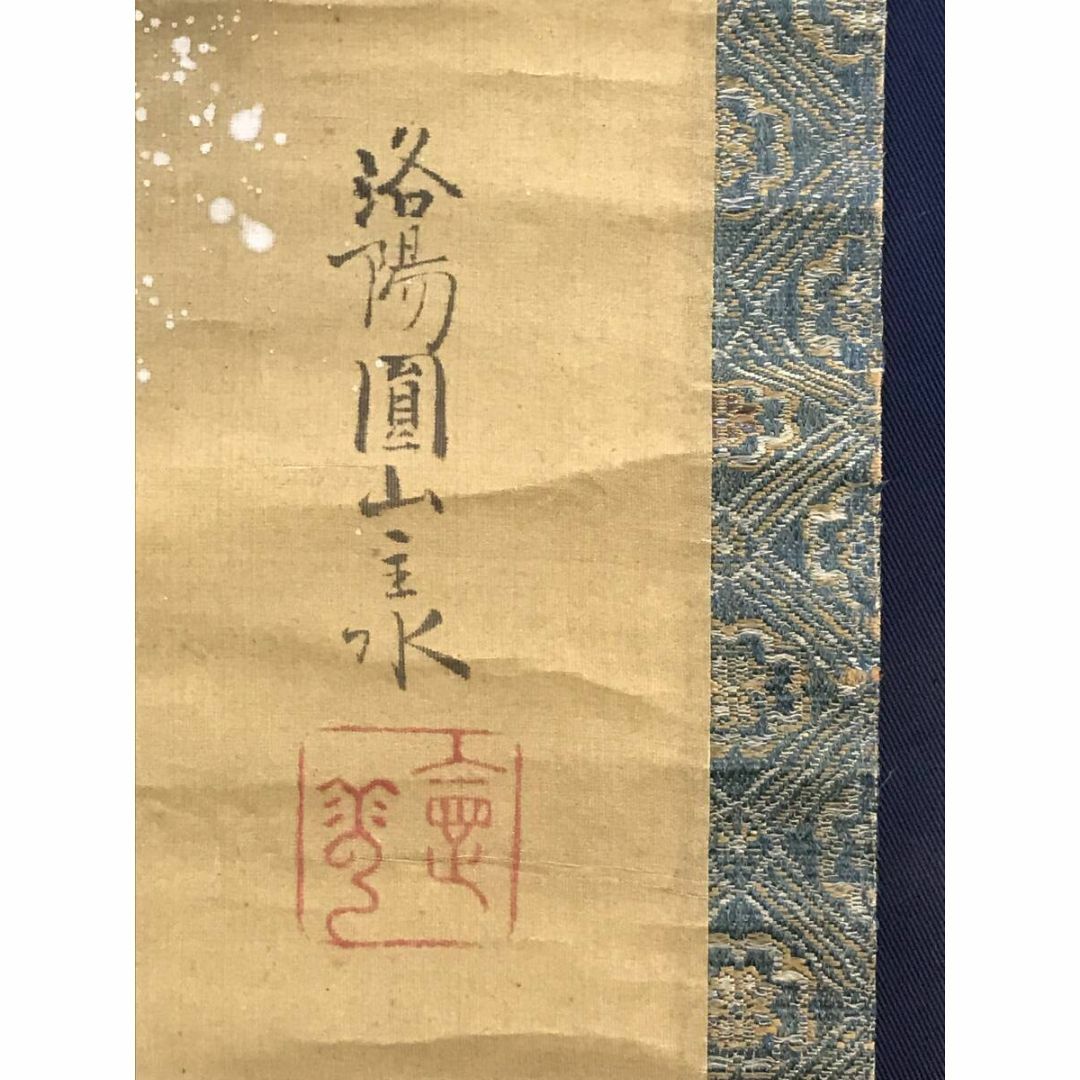 洛陽圓山主水